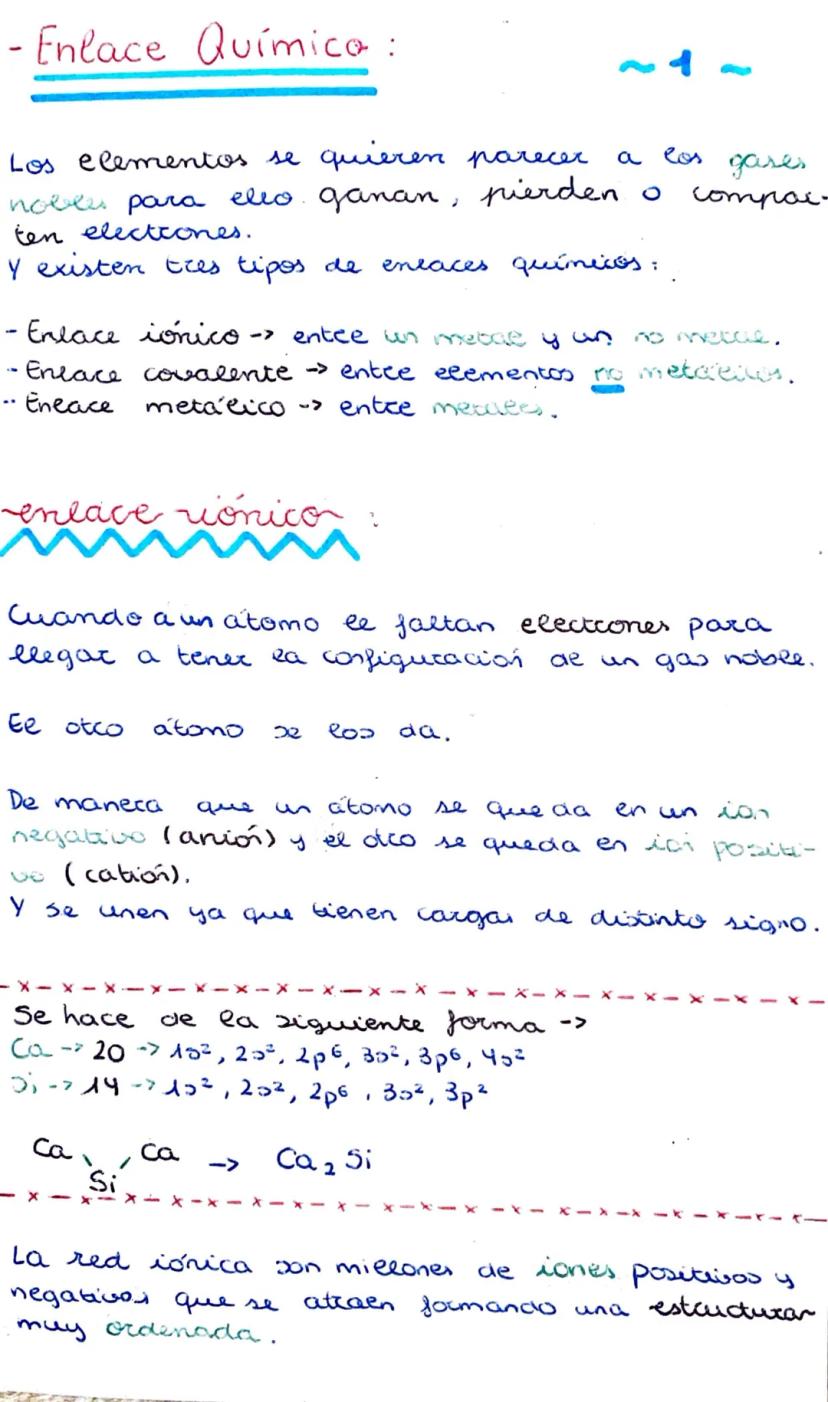 - Enlace Químico :
~ 1 ~
Los elementos se quieren parecer a los gases
nobles para ello ganan, pierden o compar-
ten electrones.
Y existen tres tipos de enlaces químicos :
- Enlace iónico -> entre un metal y un no metal.
- Enlace covalente -> entre elementos no metálicos.
- Enlace metálico -> entre metales.
enlace iónico :
Cuando a un átomo le faltan electrones para
llegar a tener la configuración de un gas noble.
El otro átomo se los da.
De manera que un átomo se queda en un ion
negativo (anión) y el otro se queda en ion positi-
vo (catión).
Y se unen ya que tienen cargas de distinto signo.
Se hace de la siguiente forma ->
Ca -> 20 -> 1s², 2s², 2p⁶, 3s², 3p⁶, 4s²
Si -> 14 -> 1s², 2s², 2p⁶, 3s², 3p²
Ca Ca -> Ca₂ Si
Si
La red iónica son millones de iones positivos y
negativos que se atraen formando una estructurar
muy ordenada.